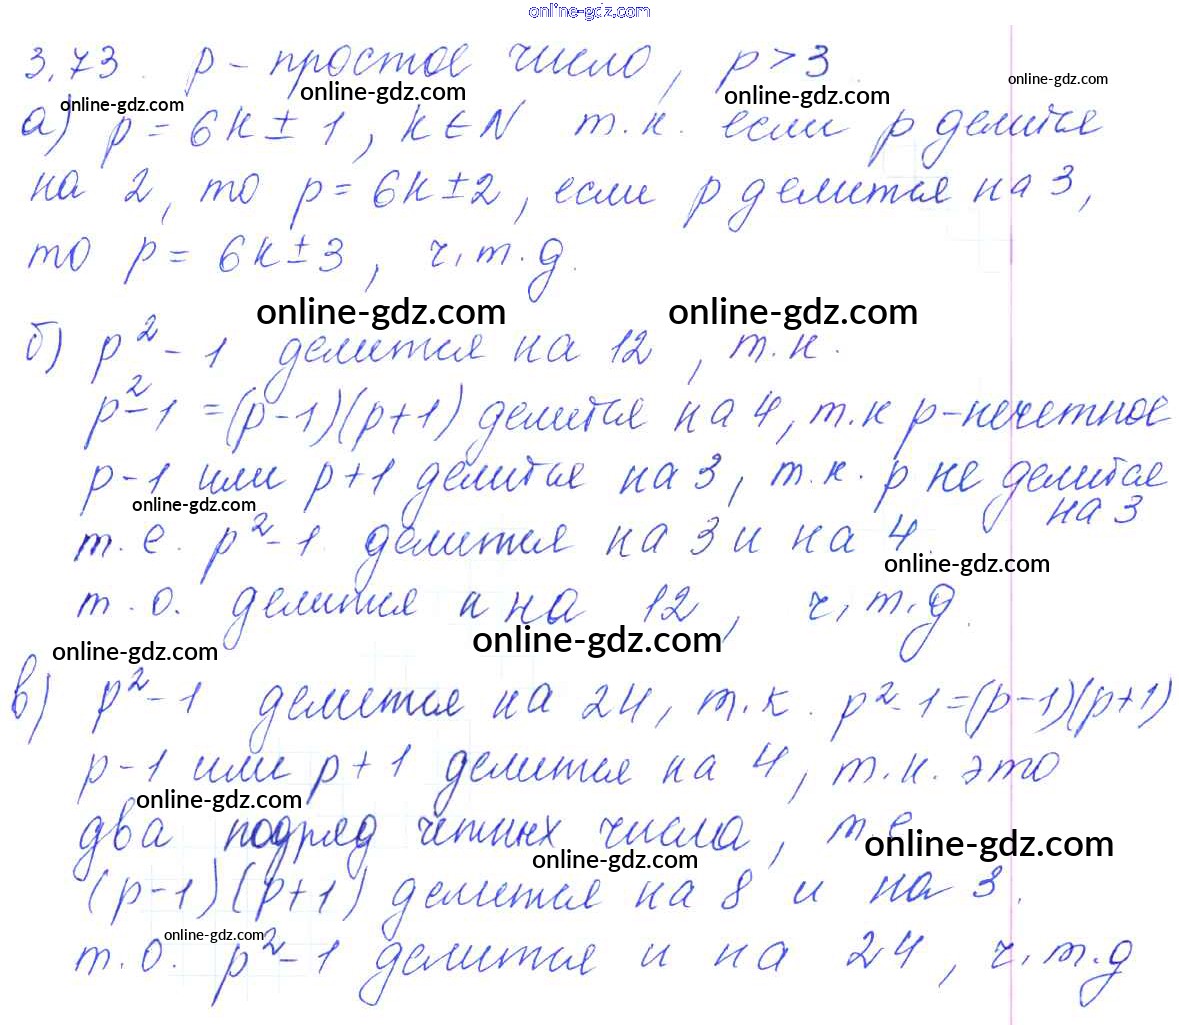 online-gdz.com
3.73. p – простое число, p > 3.
online-gdz.com online-gdz.com online-gdz.com online-gdz.com
а) p = 6k ± 1, k ∈ N т.к. если p делится
на 2, то p = 6k ± 2, если p делится на 3,
то p = 6k ± 3, ч.т.д.
online-gdz.com online-gdz.com
б) p² – 1 делится на 12, т.к.
p² – 1 = (p–1)(p+1) делится на 4, т.к p – нечетное
p–1 или p+1 делится на 3, т.к. p не делится
на 3
online-gdz.com
т.е. p² – 1 делится на 3 и на 4.
online-gdz.com
т.о. делится и на 12, ч.т.д.
online-gdz.com online-gdz.com
в) p² – 1 делится на 24, т.к. p² – 1 = (p–1)(p+1)
p–1 или p+1 делится на 4, т.к. это
online-gdz.com
два подряд четных числа, т.е.
online-gdz.com online-gdz.com
(p–1)(p+1) делится на 8 и на 3.
online-gdz.com
т.о. p² – 1 делится и на 24, ч.т.д